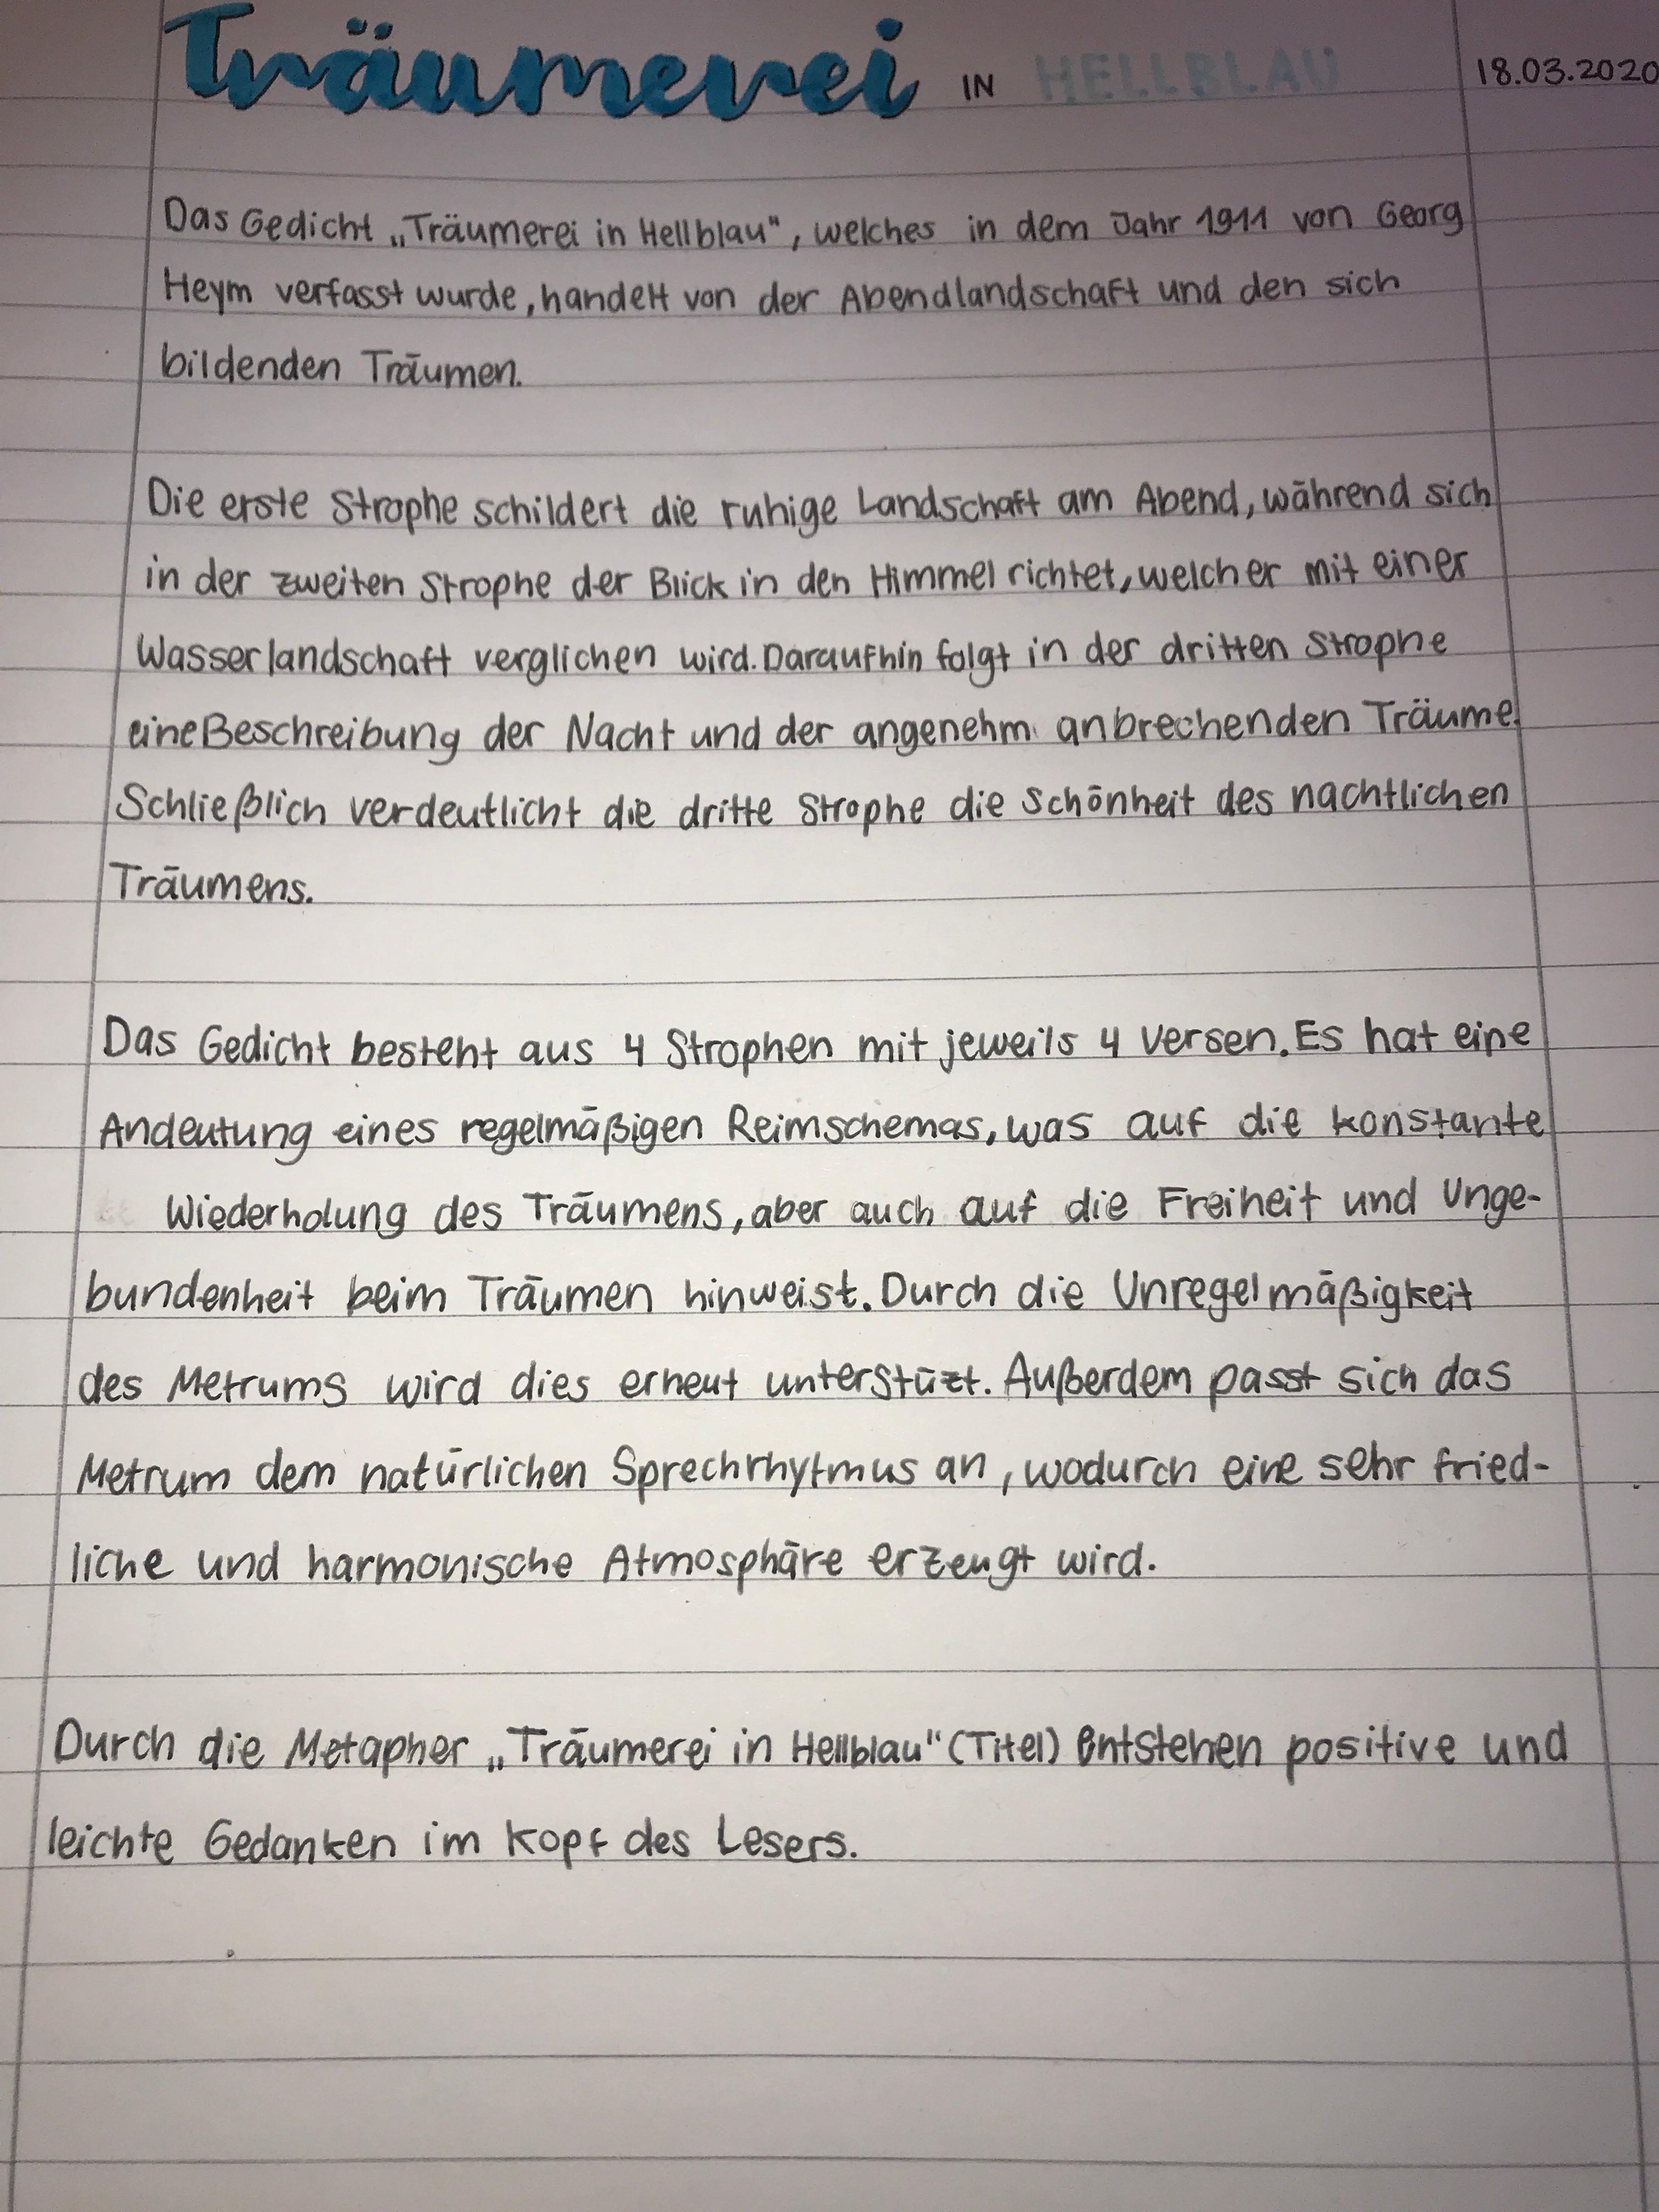 Träumerei IN HELLBLAU 18.03.2020
Das Gedicht „Träumerei in Hellblau", welches in dem Jahr 1911 von Georg
Heym verfasst wurde, handelt von der Abendlandschaft und den sich
bildenden Träumen.
Die erste Strophe schildert die ruhige Landschaft am Abend, während sich
in der zweiten Strophe der Blick in den Himmel richtet, welcher mit einer
Wasserlandschaft verglichen wird. Daraufhin folgt in der dritten Strophe
eine Beschreibung der Nacht und der angenehm anbrechenden Träume.
Schließlich verdeutlicht die dritte Strophe die Schönheit des nachtlichen
Träumens.
Das Gedicht besteht aus 4 Strophen mit jeweils 4 Versen. Es hat eine
Andeutung eines regelmäßigen Reimschemas, was auf die konstante
Wiederholung des Träumens, aber auch auf die Freiheit und Unge-
bundenheit beim Träumen hinweist. Durch die Unregelmäßigkeit
des Metrums wird dies erneut unterstüzt. Außerdem passt sich das
Metrum dem natürlichen Sprechrhytmus an, wodurch eine sehr fried-
liche und harmonische Atmosphäre erzeugt wird.
Durch die Metapher „Träumerei in Hellblau" (Titel) entstehen positive und
leichte Gedanken im Kopf des Lesers.